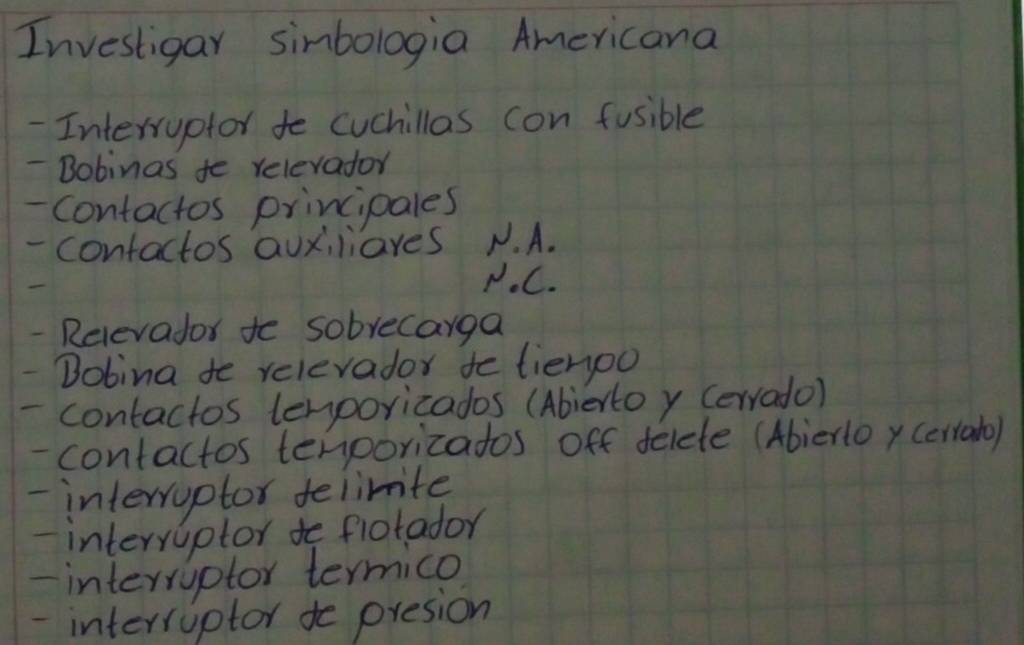 Investigar simbologia Americana
- Interruptor de cuchillas con fusible
- Bobinas de relevador
- Contactos principales
- Contactos auxiliares N.A.
- N.C.
- Relevador de sobrecarga
- Bobina de relevador de tiempo
- Contactos temporizados (Abierto y Cerrado)
- Contactos temporizados Off delete (Abierto y Cerrado)
- interruptor de limite
- interruptor de flotador
- interruptor termico
- interruptor de presión